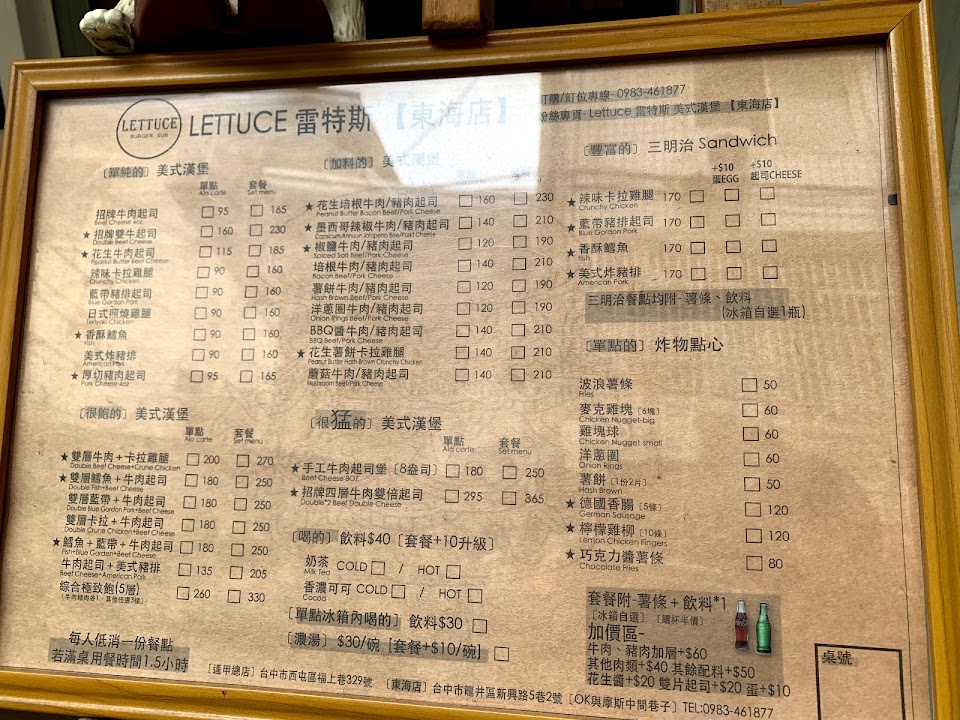 LETTUCE
BURGER SUB
LETTUCE 雷特斯【東海店】
訂購/訂位專線- 0983-461877
粉絲專頁- Lettuce 雷特斯 美式漢堡 【東海店】
〔單純的〕美式漢堡
單點 套餐
Ala carte Set menu
招牌牛肉起司 □ 95 □ 165
Beef Cheese 4oz
★ 招牌雙牛起司 □ 160 □ 230
Double Beef Cheese
★ 花生牛肉起司 □ 115 □ 185
Peanut Butter Beef Cheese
辣味卡拉雞腿 □ 90 □ 160
Crunchy Chicken
藍帶豬排起司 □ 90 □ 160
Blue Gordan Pork
日式照燒雞腿 □ 90 □ 160
Teriyaki Chicken
★ 香酥鱈魚 □ 90 □ 160
Fish
美式炸豬排 □ 90 □ 160
American Pork
★ 厚切豬肉起司 □ 95 □ 165
Pork Cheese 4oz
〔很飽的〕美式漢堡
單點 套餐
Ala carte Set menu
★ 雙層牛肉+卡拉雞腿 □ 200 □ 270
Double Beef Cheese+Crune Chicken
★ 雙層鱈魚+牛肉起司 □ 180 □ 250
Double Fish+Beef Cheese
雙層藍帶+牛肉起司 □ 180 □ 250
Double Blue Gordan Pork+Beef Cheese
雙層卡拉+牛肉起司 □ 180 □ 250
Double Crune Chicken+Beef Cheese
★ 鱈魚+藍帶+牛肉起司 □ 180 □ 250
Fish+Blue Gordan+Beef Cheese
牛肉起司+美式豬排 □ 135 □ 205
Beef Cheese+American Pork
綜合極致飽(5層) □ 260 □ 330
〔牛肉豬肉各1、其他任選3樣〕
每人低消一份餐點
若滿桌用餐時間1.5小時
〔加料的〕美式漢堡
★ 花生培根牛肉/豬肉起司 □ 160 □ 230
Peanut Butter Bacon Beef/Pork Cheese
★ 墨西哥辣椒牛肉/豬肉起司 □ 140 □ 210
Capsicum Annuun Jalapeno Beef/Pork Cheese
★ 椒鹽牛肉/豬肉起司 □ 120 □ 190
Spiced Salt Beef/Pork Cheese
培根牛肉/豬肉起司 □ 140 □ 210
Bacon Beef/Pork Cheese
薯餅牛肉/豬肉起司 □ 120 □ 190
Hash Brown Beef/Pork Cheese
洋蔥圈牛肉/豬肉起司 □ 120 □ 190
Onion Rings Beef/Pork Cheese
BBQ醬牛肉/豬肉起司 □ 140 □ 210
BBQ Beef/Pork Cheese
★ 花生薯餅卡拉雞腿 □ 140 □ 210
Peanut Butter Hash Brown Crunchy Chicken
蘑菇牛肉/豬肉起司 □ 140 □ 210
Mushroom Beef/Pork Cheese
〔很猛的〕美式漢堡
單點 套餐
Ala carte Set menu
★ 手工牛肉起司堡〔8盎司〕 □ 180 □ 250
Beef Cheese 8OZ
★ 招牌四層牛肉雙倍起司 □ 295 □ 365
Double*2 Beef Double Cheese
〔喝的〕飲料$40〔套餐+10升級〕
奶茶 COLD □ / HOT □
Milk Tea
香濃可可 COLD □ / HOT □
Cocoa
〔單點冰箱內喝的〕 飲料$30 □
〔濃湯〕 $30/碗〔套餐+$10/碗〕 □
〔豐富的〕三明治 Sandwich
+$10 +$10
蛋EGG 起司CHEESE
★ 辣味卡拉雞腿 170 □ □ □
Crunchy Chicken
★ 藍帶豬排起司 170 □ □ □
Blue Gordan Pork
★ 香酥鱈魚 170 □ □ □
Fish
★ 美式炸豬排 170 □ □ □
American Pork
三明治餐點均附- 薯條、飲料
(冰箱自選1瓶)
〔單點的〕炸物點心
波浪薯條 □ 50
Fries
麥克雞塊〔6塊〕 □ 60
Chicken Nugget-big
雞塊球 □ 60
Chicken Nugget-small
洋蔥圈 □ 60
Onion Rings
薯餅〔1份2片〕 □ 50
Hash Brown
★ 德國香腸〔5條〕 □ 120
German Sausage
★ 檸檬雞柳〔10條〕 □ 120
Lemon Chicken Fingers
★ 巧克力醬薯條 □ 80
Chocolate Fries
套餐附-薯條+飲料*1
〔冰箱自選〕〔續杯半價〕
加價區-
牛肉、豬肉加層+$60
其他肉類+$40 其餘配料+$50
花生醬+$20 雙片起司+$20 蛋+$10
桌號
〔逢甲總店〕台中市西屯區福上巷329號 〔東海店〕台中市龍井區新興路5巷2號〔OK與摩斯中間巷子〕TEL:0983-461877